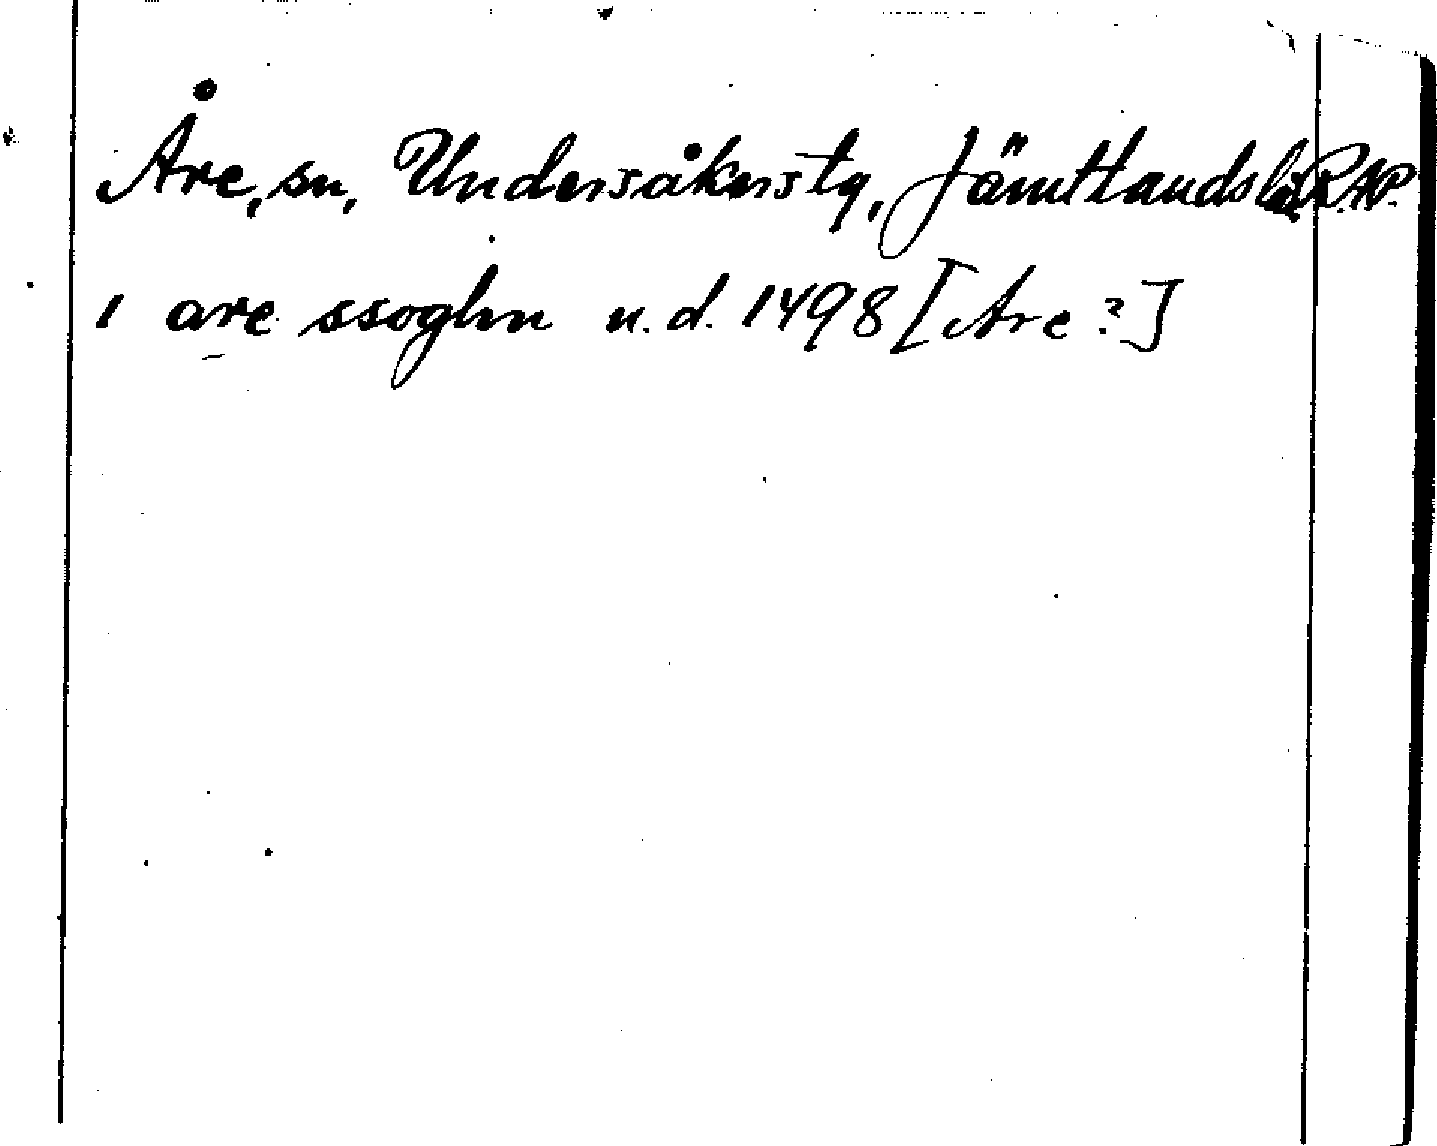 Åre, sn, Undersåkers tg, Jämtlands l. R.A.P.
i are ssoghn u.d. 1498 [Are?]